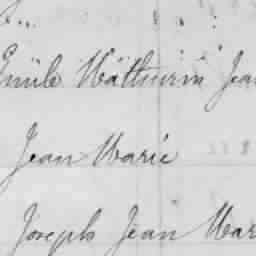 Emile Mathurin Jea
Jean Marie
Joseph Jean Mar